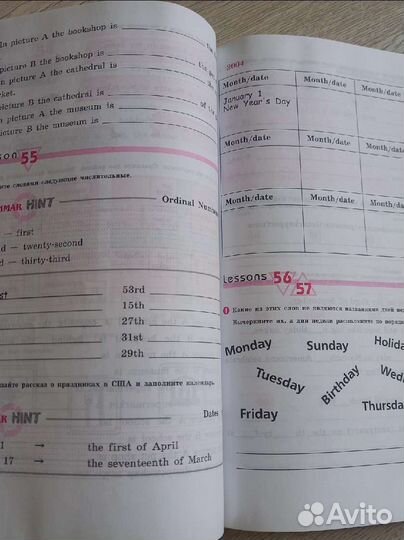 In picture A the bookshop is the
picture B the bookshop is
n picture A the cathedral is
rket.
picture B the cathedral is
n picture A the museum is of the
picture B the museum is
son 55
те словами следующие числительные.
MMAR HINT Ordinal Num
— first
d — twenty-second
d — thirty-third
st 53rd
15th
27th
31st
29th
айте рассказ о праздниках в США и заполните календарь.
AR HINT Dates
1 → the first of April
17 → the seventeenth of March
2004
Month/date Month/date Month/date
January 1
New Year's Day
Month/date Month/date Month/date
Month/date Month/date Month/date
Lessons 56
57
1 Какие из этих слов не являются названиями дней не
Вычеркните их, а дни недели расположите по поряд
Monday Sunday Holida
Tuesday Birthday Wedn
Friday Thursda
Avito